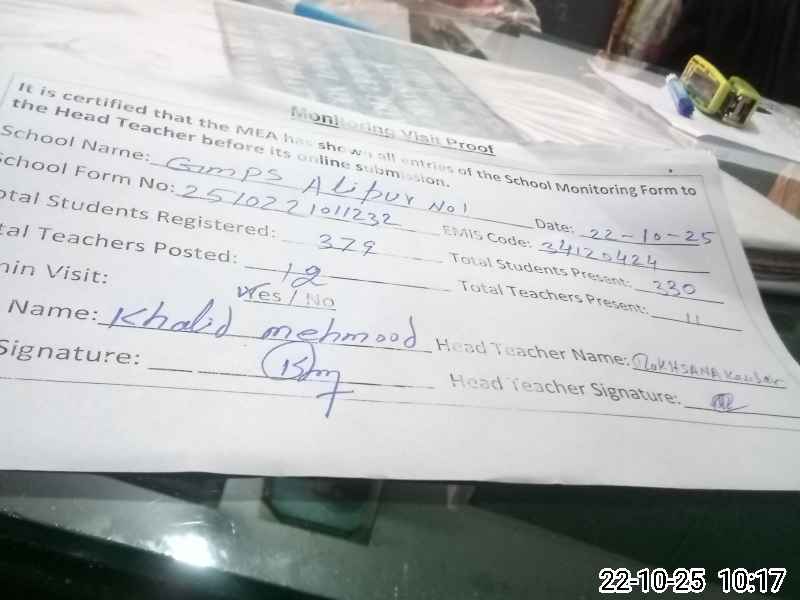 Monitoring Visit Proof
It is certified that the MEA has shown all entries of the School Monitoring Form to
the Head Teacher before its online submission.
School Name: GMPS Alipur No 1 Date: 22-10-25
School Form No: 2510221011232 EMIS Code: 34120424
otal Students Registered: 379 Total Students Present: 330
tal Teachers Posted: 12 Total Teachers Present: 11
min Visit: Yes / No
Name: Khalid mehmood Head Teacher Name: Rokhsana Kousar
Signature: Head Teacher Signature:
22-10-25 10:17